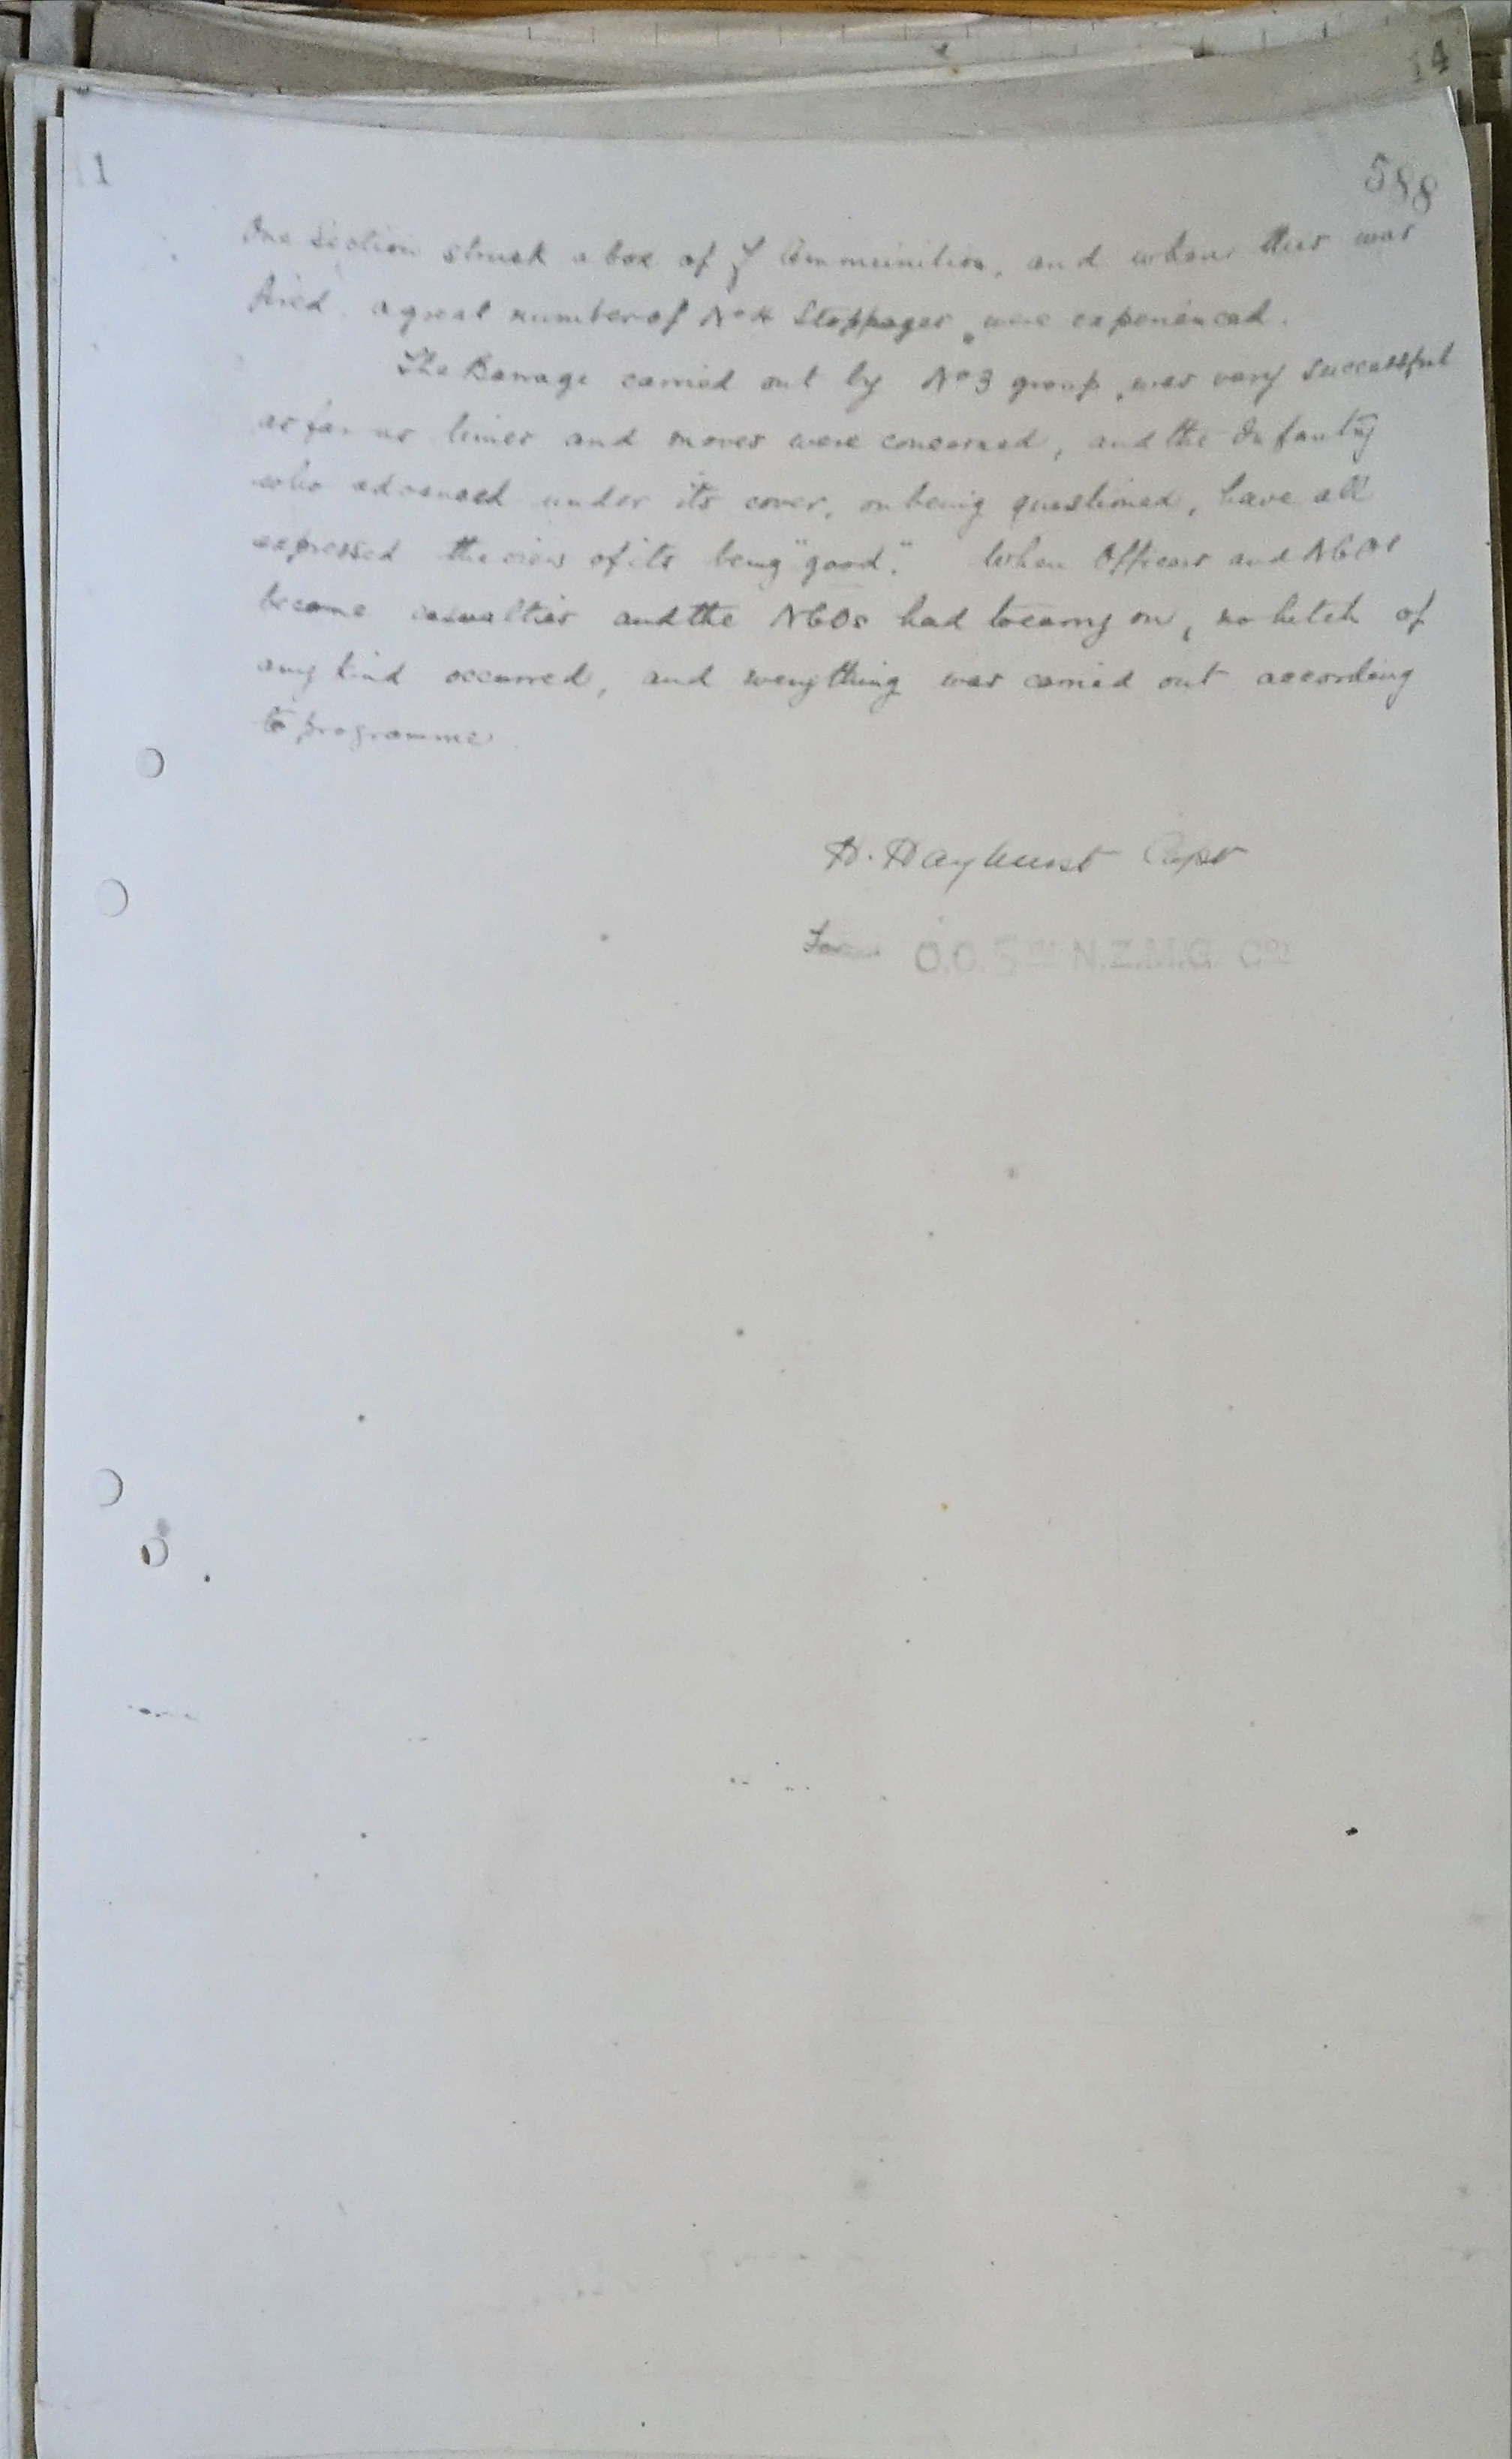 14
1
588
One Section struck a box of J Ammunition, and when this was
fired, a great number of No 4 Stoppages were experienced.
The Barrage carried out by No 3 group, was very successful
as far as times and moves were concerned, and the Infantry
who advanced under its cover, on being questioned, have all
expressed the view of its being "good." When Officers and NCOs
became casualties and the NCOs had to carry on, no hitch of
any kind occurred, and everything was carried out according
to programme.
H. Hayhurst Capt
For O.O. 5TH N.Z.M.G. COY